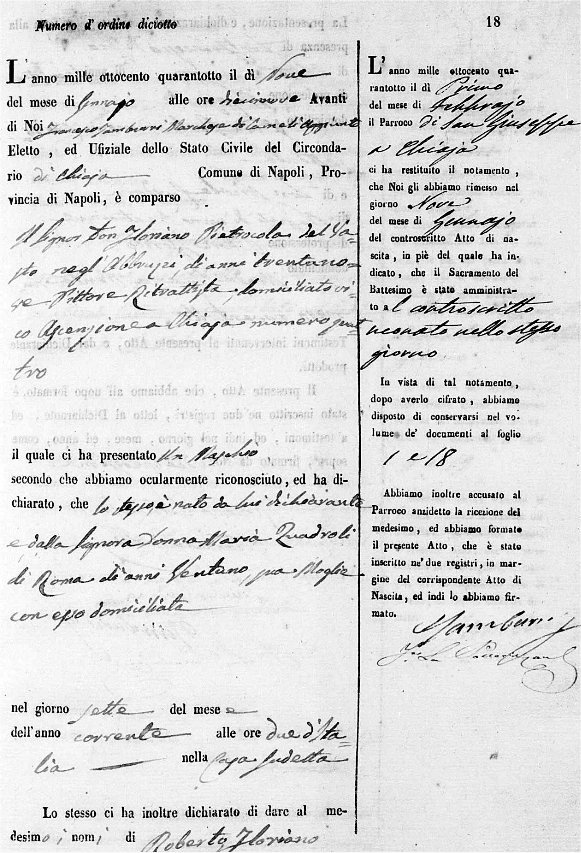 Numero d'ordine diciotto
18
L'anno mille ottocento quarantotto il dì Nove
del mese di Gennajo alle ore diecinove Avanti
di Noi Francesco Tamburri Marchese di
Eletto, ed Ufiziale dello Stato Civile del Circonda-
rio di Chiaja Comune di Napoli, Pro-
vincia di Napoli, è comparso
Il Signor Don Floriano Pietrocola del Va-
sto negli Abbruzzi di anni trentano-
ve Pittore Ritrattista, domiciliato vi-
co Ascenzione a Chiaja numero quat
tro
il quale ci ha presentato Un Maschio
secondo che abbiamo ocularmente riconosciuto, ed ha di-
chiarato, che lo stesso è nato da lui dichiarante
e dalla Signora Donna Maria Quadroli
di Roma di anni Ventuno, sua Moglie
con esso domiciliata
nel giorno sette del mese e
dell'anno corrente alle ore due d'Ita-
lia nella Casa sudetta
Lo stesso ci ha inoltre dichiarato di dare al me-
desimo i nomi di Roberto Floriano
L'anno mille ottocento qua-
rantotto il dì Primo
del mese di Febbrajo
il Parroco di San Giuseppe
a Chiaja
ci ha restituito il notamento,
che Noi gli abbiamo rimesso nel
giorno Nove
del mese di Gennajo
del controscritto Atto di na-
scita, in piè del quale ha in-
dicato, che il Sacramento del
Battesimo è stato amministra-
to al controscritto
neonato nello stesso
giorno
In vista di tal notamento,
dopo averlo cifrato, abbiamo
disposto di conservarsi nel vo-
lume de' documenti al foglio
1 e 18
Abbiamo inoltre accusato al
Parroco anzidetto la ricezione del
medesimo, ed abbiamo formato
il presente Atto, che è stato
inscritto ne' due registri, in mar-
gine del corrispondente Atto di
Nascita, ed indi lo abbiamo fir-
mato.
Tamburri